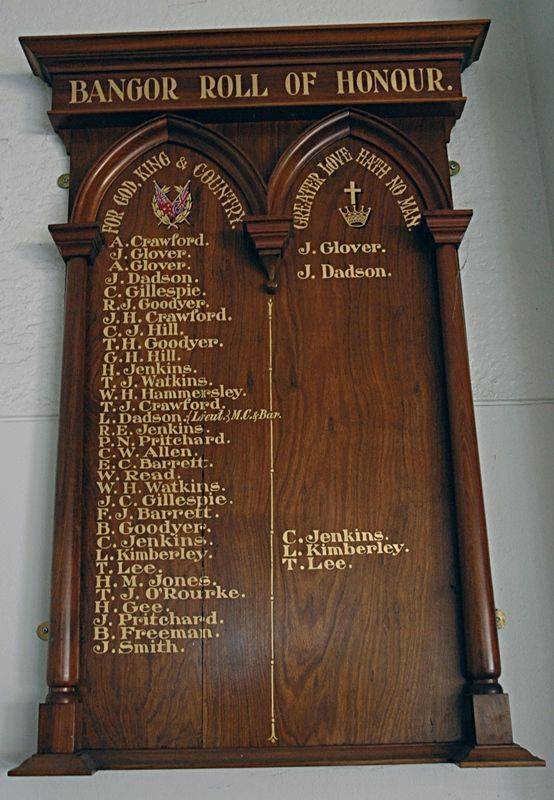 BANGOR ROLL OF HONOUR.
FOR GOD, KING & COUNTRY.
A. Crawford.
J. Glover.
A. Glover.
J. Dadson.
C. Gillespie.
R.J. Goodyer.
J.H. Crawford.
C.J. Hill.
T.H. Goodyer.
G.H. Hill.
H. Jenkins.
T.J. Watkins.
W.H. Hammersley.
T.J. Crawford.
L. Dadson. (Lieut.) M.C. & Bar.
R.E. Jenkins.
P.N. Pritchard.
C.W. Allen.
E.C. Barrett.
W. Read.
W.H. Watkins.
J.C. Gillespie.
F.J. Barrett.
B. Goodyer.
C. Jenkins.
L. Kimberley.
T. Lee.
H.M. Jones.
T.J. O'Rourke.
H. Gee.
J. Pritchard.
B. Freeman.
J. Smith.
GREATER LOVE HATH NO MAN.
J. Glover.
J. Dadson.
C. Jenkins.
L. Kimberley.
T. Lee.